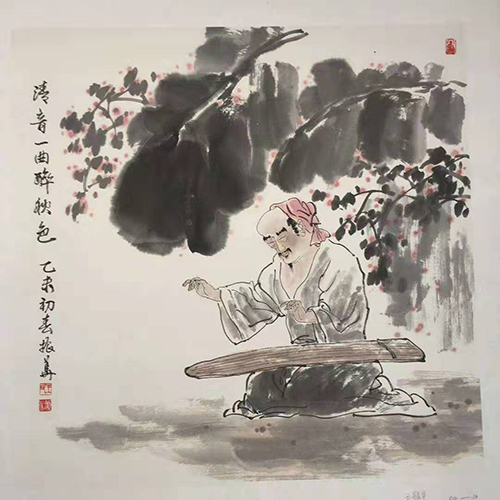 清音一曲醉秋色
乙未初春振華